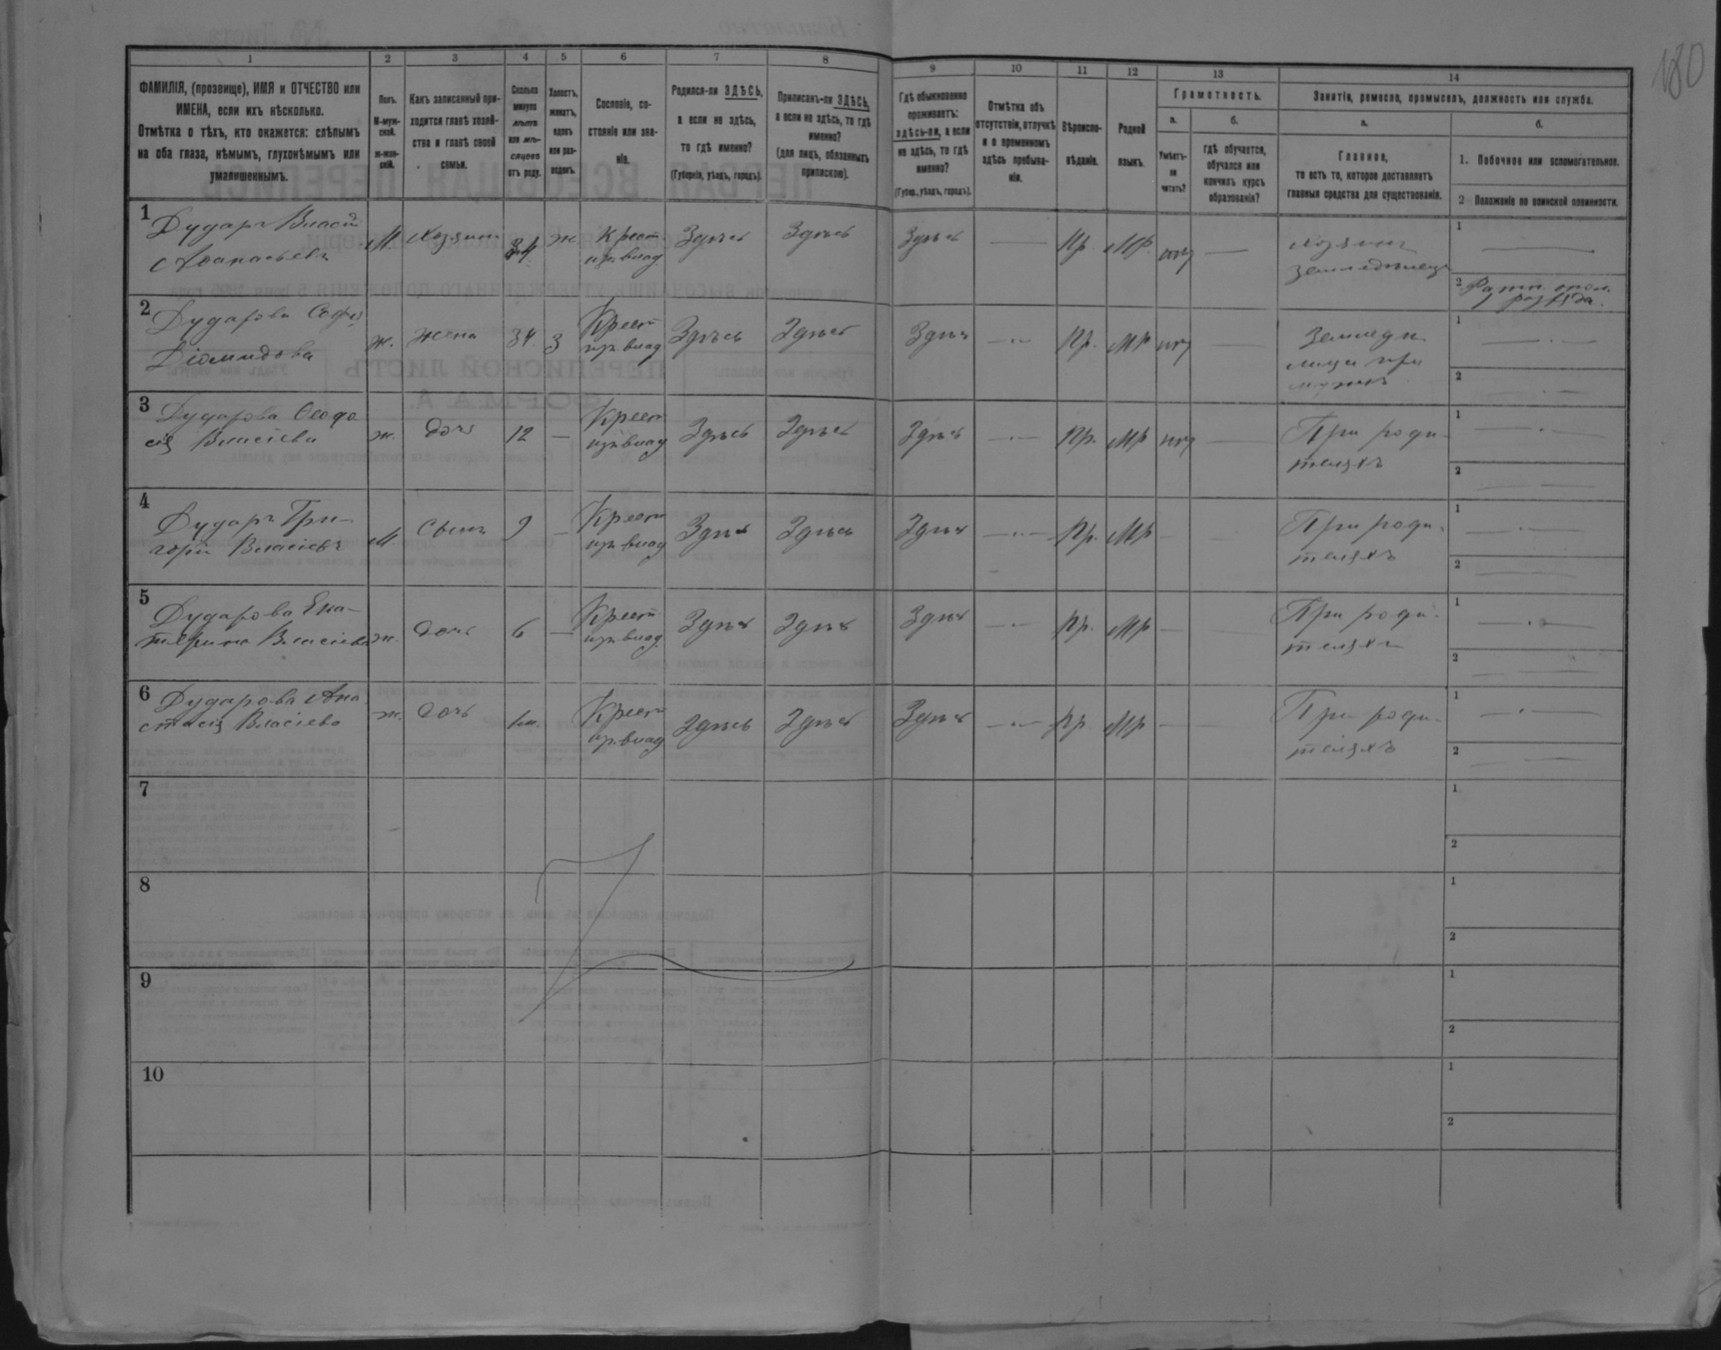 180
1 2 3 4 5 6 7 8 9 10 11 12 13 14
ФАМИЛІЯ, (прозвище), ИМЯ и ОТЧЕСТВО или
ИМЕНА, если ихъ нѣсколько.
Отмѣтка о тѣхъ, кто окажется: слѣпымъ
на оба глаза, нѣмымъ, глухонѣмымъ или
умалишеннымъ.
Полъ.
М-муж-
ской.
ж-жен-
скій.
Какъ записанный при-
ходится главѣ хозяй-
ства и главѣ своей
семьи.
Сколько
минуло
лѣтъ
или мѣ-
сяцевъ
отъ роду.
Холостъ,
женатъ,
вдовъ
или раз-
веденъ.
Сословіе, со-
стояніе или зва-
ніе.
Родился-ли ЗДѢСЬ,
а если не здѣсь,
то гдѣ именно?
(Губернія, уѣздъ, городъ).
Приписанъ-ли ЗДѢСЬ,
а если не здѣсь, то гдѣ
именно?
(для лицъ, обязанныхъ
припискою).
Гдѣ обыкновенно
проживаетъ:
здѣсь-ли, а если
не здѣсь, то гдѣ
именно?
(Губер., уѣздъ, городъ).
Отмѣтка объ
отсутствіи, отлучкѣ
и о временномъ
здѣсь пребыва-
ніи.
Вѣроиспо-
вѣданіе.
Родной
языкъ.
Грамотность.
а.
Умѣетъ-
ли
читать?
б.
гдѣ обучается,
обучался или
кончилъ курсъ
образованія?
Занятіе, ремесло, промыселъ, должность или служба.
а.
Главное,
то есть то, которое доставляетъ
главныя средства для существованія.
б.
1. Побочное или вспомогательное.
2 Положеніе по воинской повинности.
1 Дударъ Власій
Аѳанасьевъ М. Хозяинъ 34 ж Крест
из. влад Здѣсь Здѣсь Здѣсь — Пр. МР. — Хозяинъ
земледѣлецъ 1 —
2
2 Дударова Софія
Діомидова ж. жена 34 З Крест
из. влад Здѣсь Здѣсь Здѣсь — Пр. МР — при
мужѣ 1 —
2 —
3 Дударова Ѳеодо
сія Власіева ж. дочь 12 — Крест
из. влад Здѣсь Здѣсь Здѣсь — Пр. МР — При роди-
теляхъ 1 —
2 —
4 Дударъ Гри-
горій Власіевъ М сынъ 9 — Крест
из. влад Здѣсь Здѣсь Здѣсь — Пр. МР — — При роди-
теляхъ 1 —
2 —
5 Дударова Ека-
терина Власіева ж. дочь 6 — Крест
из. влад Здѣсь Здѣсь Здѣсь — Пр. МР — — При роди-
теляхъ 1 —
2 —
6 Дударова Ана
стасія Власіева ж. дочь 1м. Крест
из. влад Здѣсь Здѣсь Здѣсь — Пр. МР — — При роди-
теляхъ 1 —
2 —
7 1
2
8 1
2
9 1
2
10 1
2